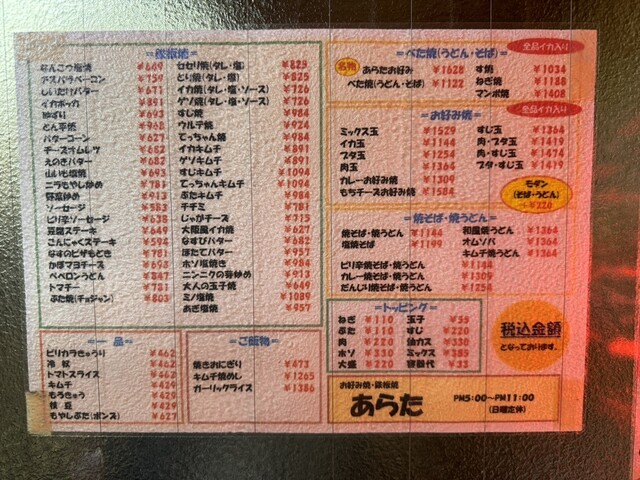 =鉄板焼=
なんこつ塩焼 ¥669
アスパラベーコン ¥759
しいたけバター ¥671
イカポッカ ¥891
¥693
とん平焼 ¥968
バターコーン ¥627
チーズオムレツ ¥682
えのきバター ¥682
山いも塩焼 ¥693
ニラもやし炒め ¥781
野菜炒め ¥913
ソーセージ ¥583
ピリ辛ソーセージ ¥638
豆腐ステーキ ¥649
こんにゃくステーキ ¥594
なすのピザもどき ¥781
かぼマヨチーズ ¥693
ペペロンうどん ¥781
トマチー ¥781
ぶた焼(チョジャン) ¥803
セセリ焼(タレ・塩) ¥825
とり焼(タレ・塩) ¥825
イカ焼(タレ・塩・ソース) ¥726
ゲソ焼(タレ・塩・ソース) ¥726
すじ焼 ¥984
ウルテ焼 ¥924
てっちゃん焼 ¥984
イカキムチ ¥891
ゲソキムチ ¥891
すじキムチ ¥1094
てっちゃんキムチ ¥1094
ぶたキムチ ¥984
チヂミ ¥781
じゃがチーズ ¥715
大阪風イカ焼 ¥627
なすびバター ¥682
ほたてバター ¥957
ホソ塩焼き ¥984
ニンニクの芽炒め ¥913
大人の玉子焼 ¥649
ミノ塩焼 ¥1089
あぎ塩焼 ¥957
=一品=
ピリカラきゅうり ¥462
冷奴 ¥462
トマトスライス ¥462
キムチ ¥429
もろきゅう ¥429
枝豆 ¥429
もやしぶた(ポンズ) ¥627
=ご飯物=
焼きおにぎり ¥473
キムチ焼めし ¥1265
ガーリックライス ¥1386
=べた焼(うどん・そば)=
全品イカ入り
名物
あらたお好み ¥1628
べた焼(うどん・そば) ¥1122
す焼 ¥1034
ねぎ焼 ¥1188
マンボ焼 ¥1408
=お好み焼=
全品イカ入り
ミックス玉 ¥1529
イカ玉 ¥1144
ブタ玉 ¥1254
肉玉 ¥1364
カレーお好み焼 ¥1309
もちチーズお好み焼 ¥1584
すじ玉 ¥1364
肉・ブタ玉 ¥1419
肉・すじ玉 ¥1474
ブタ・すじ玉 ¥1419
モダン
(そば・うどん)
¥220
=焼そば・焼うどん=
焼そば・焼うどん ¥1144
塩焼そば ¥1199
ピリ辛焼そば・焼うどん ¥1144
カレー焼そば・焼うどん ¥1309
だんじり焼そば・焼うどん ¥1254
和風焼うどん ¥1364
オムソバ ¥1364
キムチ焼うどん ¥1364
=トッピング=
ねぎ ¥110
ぶた ¥110
肉 ¥220
ホソ ¥330
大盛 ¥220
玉子 ¥55
すじ ¥220
油カス ¥330
ミックス ¥385
容器代 ¥33
税込金額
となっております。
お好み焼・鉄板焼
あらた
PM5:00~PM11:00
(日曜定休)